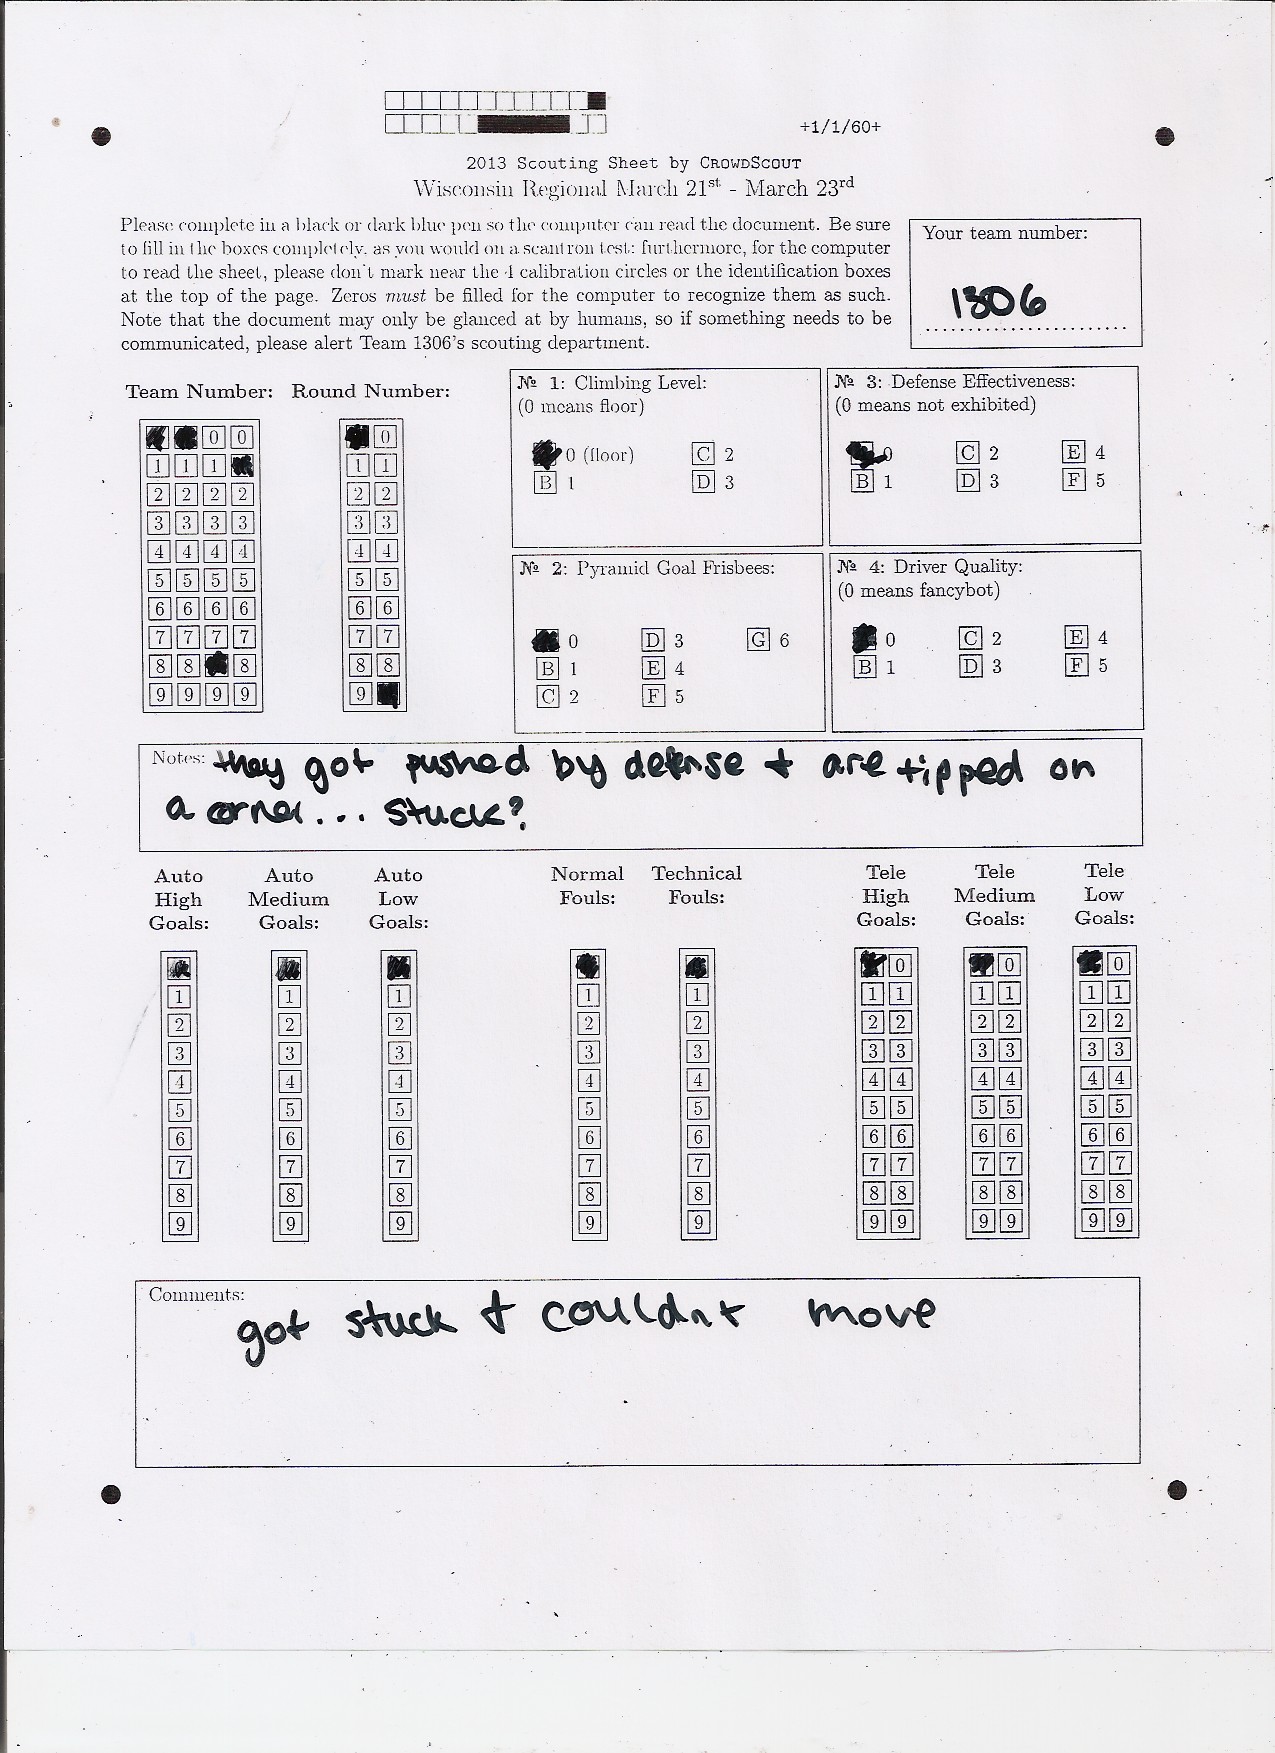 +1/1/60+
2013 Scouting Sheet by CROWDSCOUT
Wisconsin Regional March 21st - March 23rd
Please complete in a black or dark blue pen so the computer can read the document. Be sure
to fill in the boxes completely, as you would on a scantron test; furthermore, for the computer
to read the sheet, please don't mark near the 4 calibration circles or the identification boxes
at the top of the page. Zeros must be filled for the computer to recognize them as such.
Note that the document may only be glanced at by humans, so if something needs to be
communicated, please alert Team 1306's scouting department.
Your team number:
1306
Team Number: Round Number:
0 0
1 1 1
2 2 2 2
3 3 3 3
4 4 4 4
5 5 5 5
6 6 6 6
7 7 7 7
8 8 8
9 9 9 9
0
1 1
2 2
3 3
4 4
5 5
6 6
7 7
8 8
9
№ 1: Climbing Level:
(0 means floor)
0 (floor) C 2
B 1 D 3
№ 3: Defense Effectiveness:
(0 means not exhibited)
0 C 2 E 4
B 1 D 3 F 5
№ 2: Pyramid Goal Frisbees:
0 D 3 G 6
B 1 E 4
C 2 F 5
№ 4: Driver Quality:
(0 means fancybot)
0 C 2 E 4
B 1 D 3 F 5
Notes: they got pushed by defense + are tipped on
a corner... stuck?
Auto High Goals:
1
2
3
4
5
6
7
8
9
Auto Medium Goals:
1
2
3
4
5
6
7
8
9
Auto Low Goals:
1
2
3
4
5
6
7
8
9
Normal Fouls:
1
2
3
4
5
6
7
8
9
Technical Fouls:
1
2
3
4
5
6
7
8
9
Tele High Goals:
0
1 1
2 2
3 3
4 4
5 5
6 6
7 7
8 8
9 9
Tele Medium Goals:
0
1 1
2 2
3 3
4 4
5 5
6 6
7 7
8 8
9 9
Tele Low Goals:
0
1 1
2 2
3 3
4 4
5 5
6 6
7 7
8 8
9 9
Comments:
got stuck + couldnt move